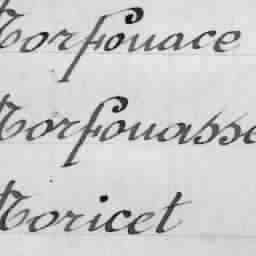 Morfouace
Morfouasse
Moricet